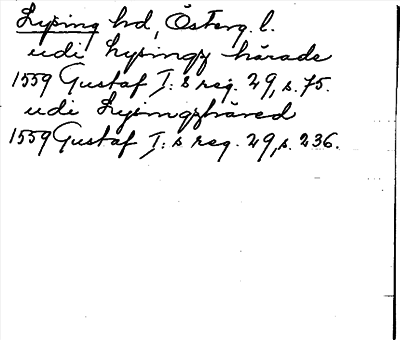 Lysing hd, Österg. l.
udi Lysingz härade
1559 Gustaf I:s reg. 29, s. 75.
udi Lysingzháred
1559 Gustaf I:s reg. 29, s. 236.